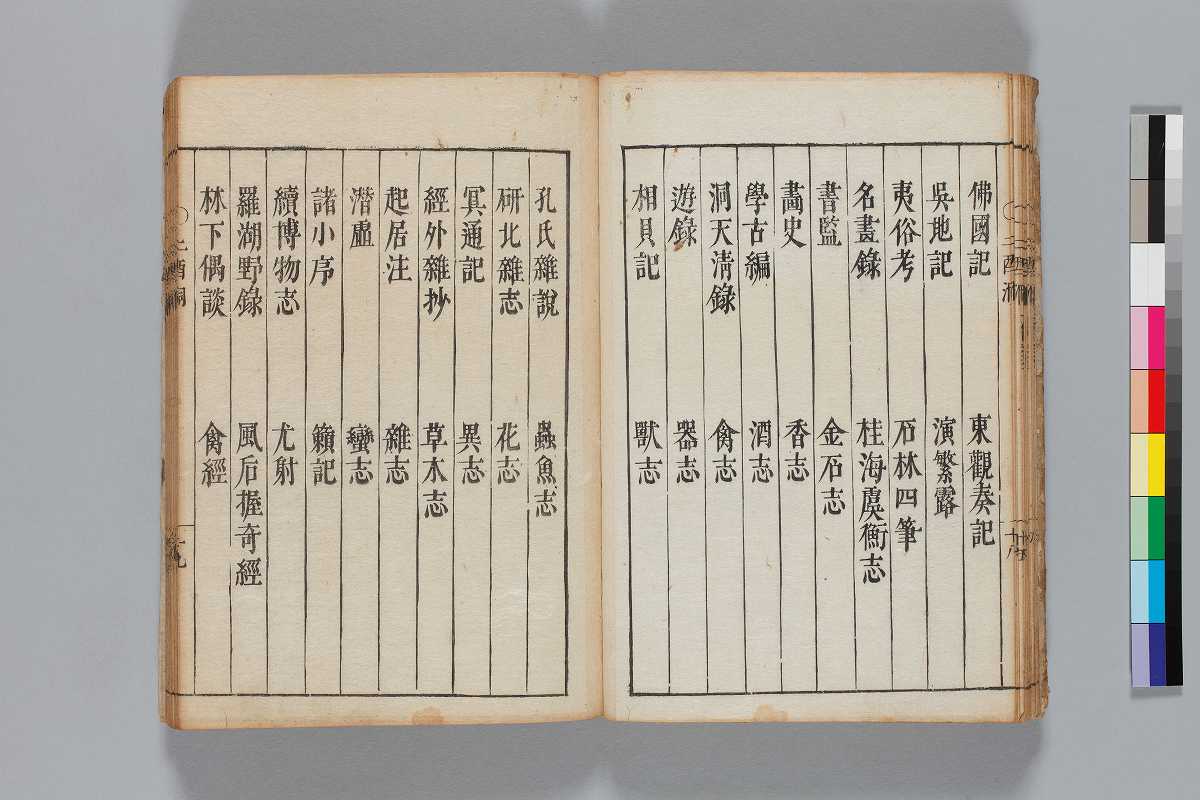 佛國記 東觀奏記
吳地記 演繁露
夷俗考 石林四筆
名畫錄 桂海虞衡志
書監 金石志
畵史 香志
學古編 酒志
洞天清錄 禽志
遊錄 器志
相貝記 獸志
孔氏雜說 蟲魚志
研北雜志 花志
冥通記 異志
經外雜抄 草木志
起居注 雜志
潛虛 蠻志
諸小序 籟記
續博物志 尤射
羅湖野錄 風后握奇經
林下偶談 禽經